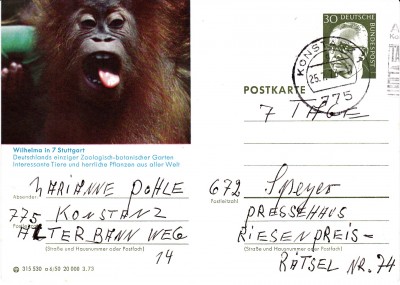 30
DEUTSCHE BUNDESPOST
KONSTANZ
25.
775
POSTKARTE
7 TAGE
Wilhelma in 7 Stuttgart
Deutschlands einziger Zoologisch-botanischer Garten
Interessante Tiere und herrliche Pflanzen aus aller Welt
Absender:
MARIANNE POHLE
775 KONSTANZ
Postleitzahl
ALTER BANN WEG
14
(Straße und Hausnummer oder Postfach)
315 530 a 6/50 20 008 3,73
672 Speyer
Postleitzahl
PRESSEHAUS
RIESENPREIS-
(Straße und Hausnummer oder Postfach)
RÄTSEL NR. 74